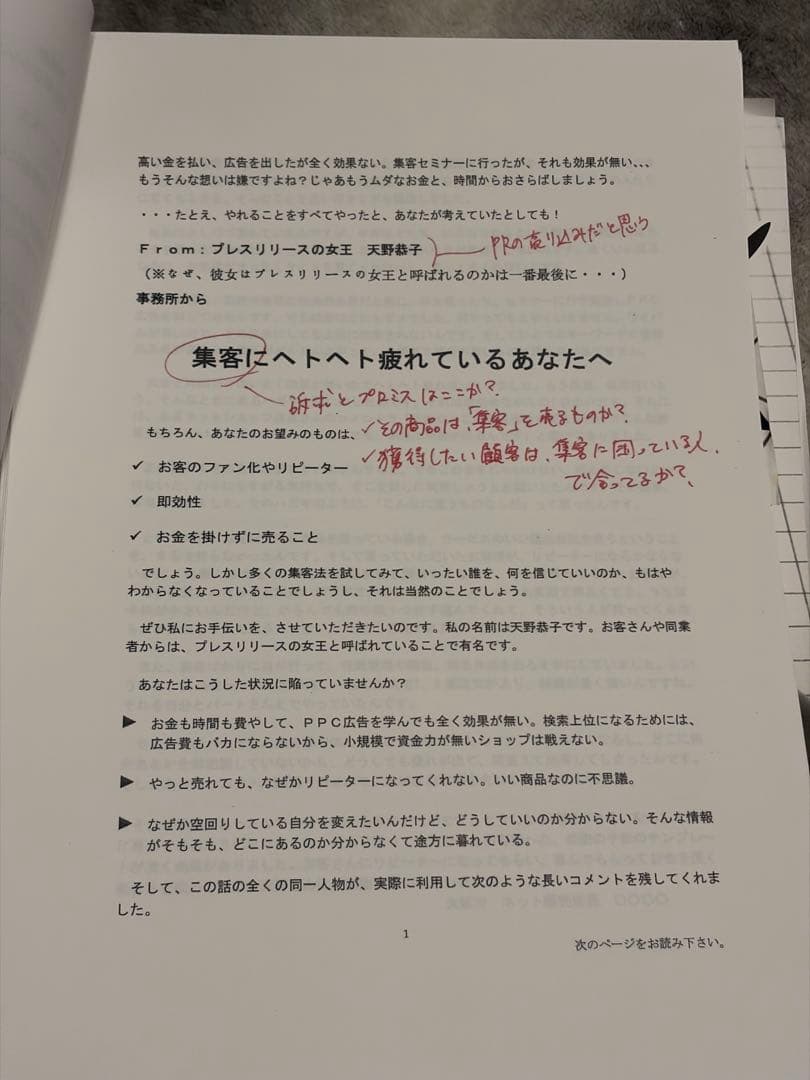 高い金を払い、広告を出したが全く効果ない。集客セミナーに行ったが、それも効果が無い、、、
もうそんな想いは嫌ですよね？じゃあもうムダなお金と、時間からおさらばしましょう。
・・・たとえ、やれることをすべてやったと、あなたが考えていたとしても！
Ｆｒｏｍ：プレスリリースの女王　天野恭子
PRの売り込みだと思う
（※なぜ、彼女はプレスリリースの女王と呼ばれるのかは一番最後に・・・）
事務所から
集客にヘトヘト疲れているあなたへ
訴求とプロミスはここか？
もちろん、あなたのお望みのものは、
✓その商品は、「集客」を売るものか？
✓獲得したい顧客は、集客に困っている人、
で合ってるか？
✓ お客のファン化やリピーター
✓ 即効性
✓ お金を掛けずに売ること
でしょう。しかし多くの集客法を試してみて、いったい誰を、何を信じていいのか、もはや
わからなくなっていることでしょうし、それは当然のことでしょう。
ぜひ私にお手伝いを、させていただきたいのです。私の名前は天野恭子です。お客さんや同業
者からは、プレスリリースの女王と呼ばれていることで有名です。
あなたはこうした状況に陥っていませんか？
お金も時間も費やして、ＰＰＣ広告を学んでも全く効果が無い。検索上位になるためには、
広告費もバカにならないから、小規模で資金力が無いショップは戦えない。
やっと売れても、なぜかリピーターになってくれない。いい商品なのに不思議。
なぜか空回りしている自分を変えたいんだけど、どうしていいのか分からない。そんな情報
がそもそも、どこにあるのか分からなくて途方に暮れている。
そして、この話の全くの同一人物が、実際に利用して次のような長いコメントを残してくれま
した。
1
次のページをお読み下さい。